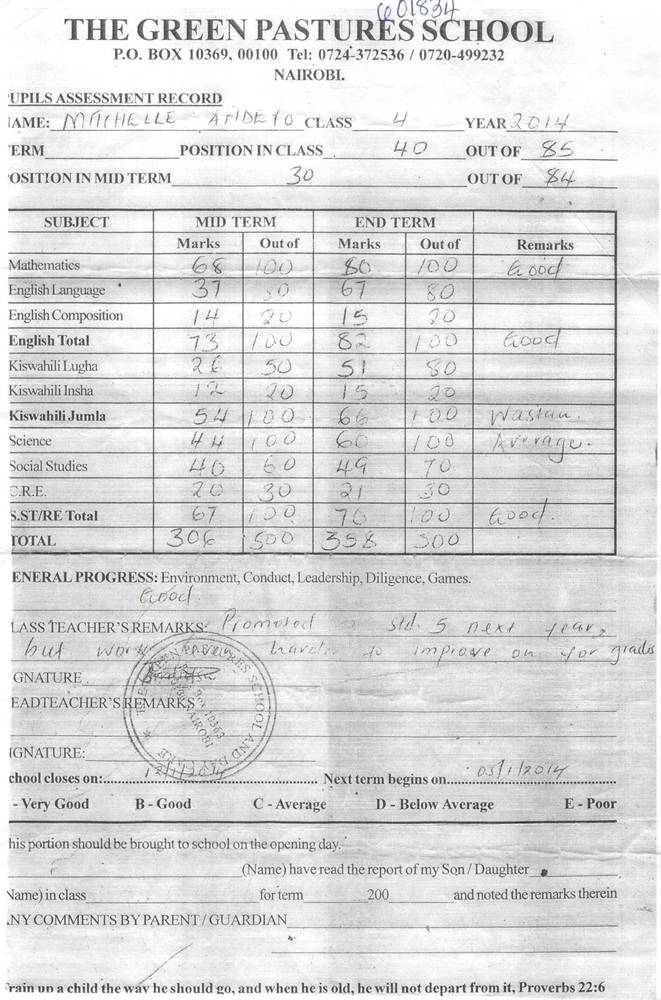 601834
THE GREEN PASTURES SCHOOL
P.O. BOX 10369, 00100 Tel: 0724-372536 / 0720-499232
NAIROBI.
UPILS ASSESSMENT RECORD
AME: MITCHELLE CLASS 4 YEAR 2014
ERM POSITION IN CLASS 40 OUT OF 85
OSITION IN MID TERM 30 OUT OF 84
SUBJECT MID TERM END TERM
Marks Out of Marks Out of Remarks
Mathematics 68 100 80 100 Good
English Language 37 50 67 80
English Composition 14 20 15 20
English Total 73 100 82 100 Good
Kiswahili Lugha 26 50 51 80
Kiswahili Insha 12 20 15 20
Kiswahili Jumla 54 100 66 100 Wastan.
Science 44 100 60 100 Average.
Social Studies 40 60 49 70
C.R.E. 20 30 21 30
S.ST/RE Total 67 100 70 100 Good.
TOTAL 306 500 358 500
ENERAL PROGRESS: Environment, Conduct, Leadership, Diligence, Games.
Good.
LASS TEACHER'S REMARKS: Promoted std. 5 next year,
but work harder to improve on yor grades
GNATURE
EADTEACHER'S REMARKS
IGNATURE:
chool closes on: Next term begins on 05/1/2014
- Very Good B - Good C - Average D - Below Average E - Poor
his portion should be brought to school on the opening day.
(Name) have read the report of my Son / Daughter
Name) in class for term 200 and noted the remarks therein
NY COMMENTS BY PARENT / GUARDIAN
rain up a child the way he should go, and when he is old, he will not depart from it, Proverbs 22:6